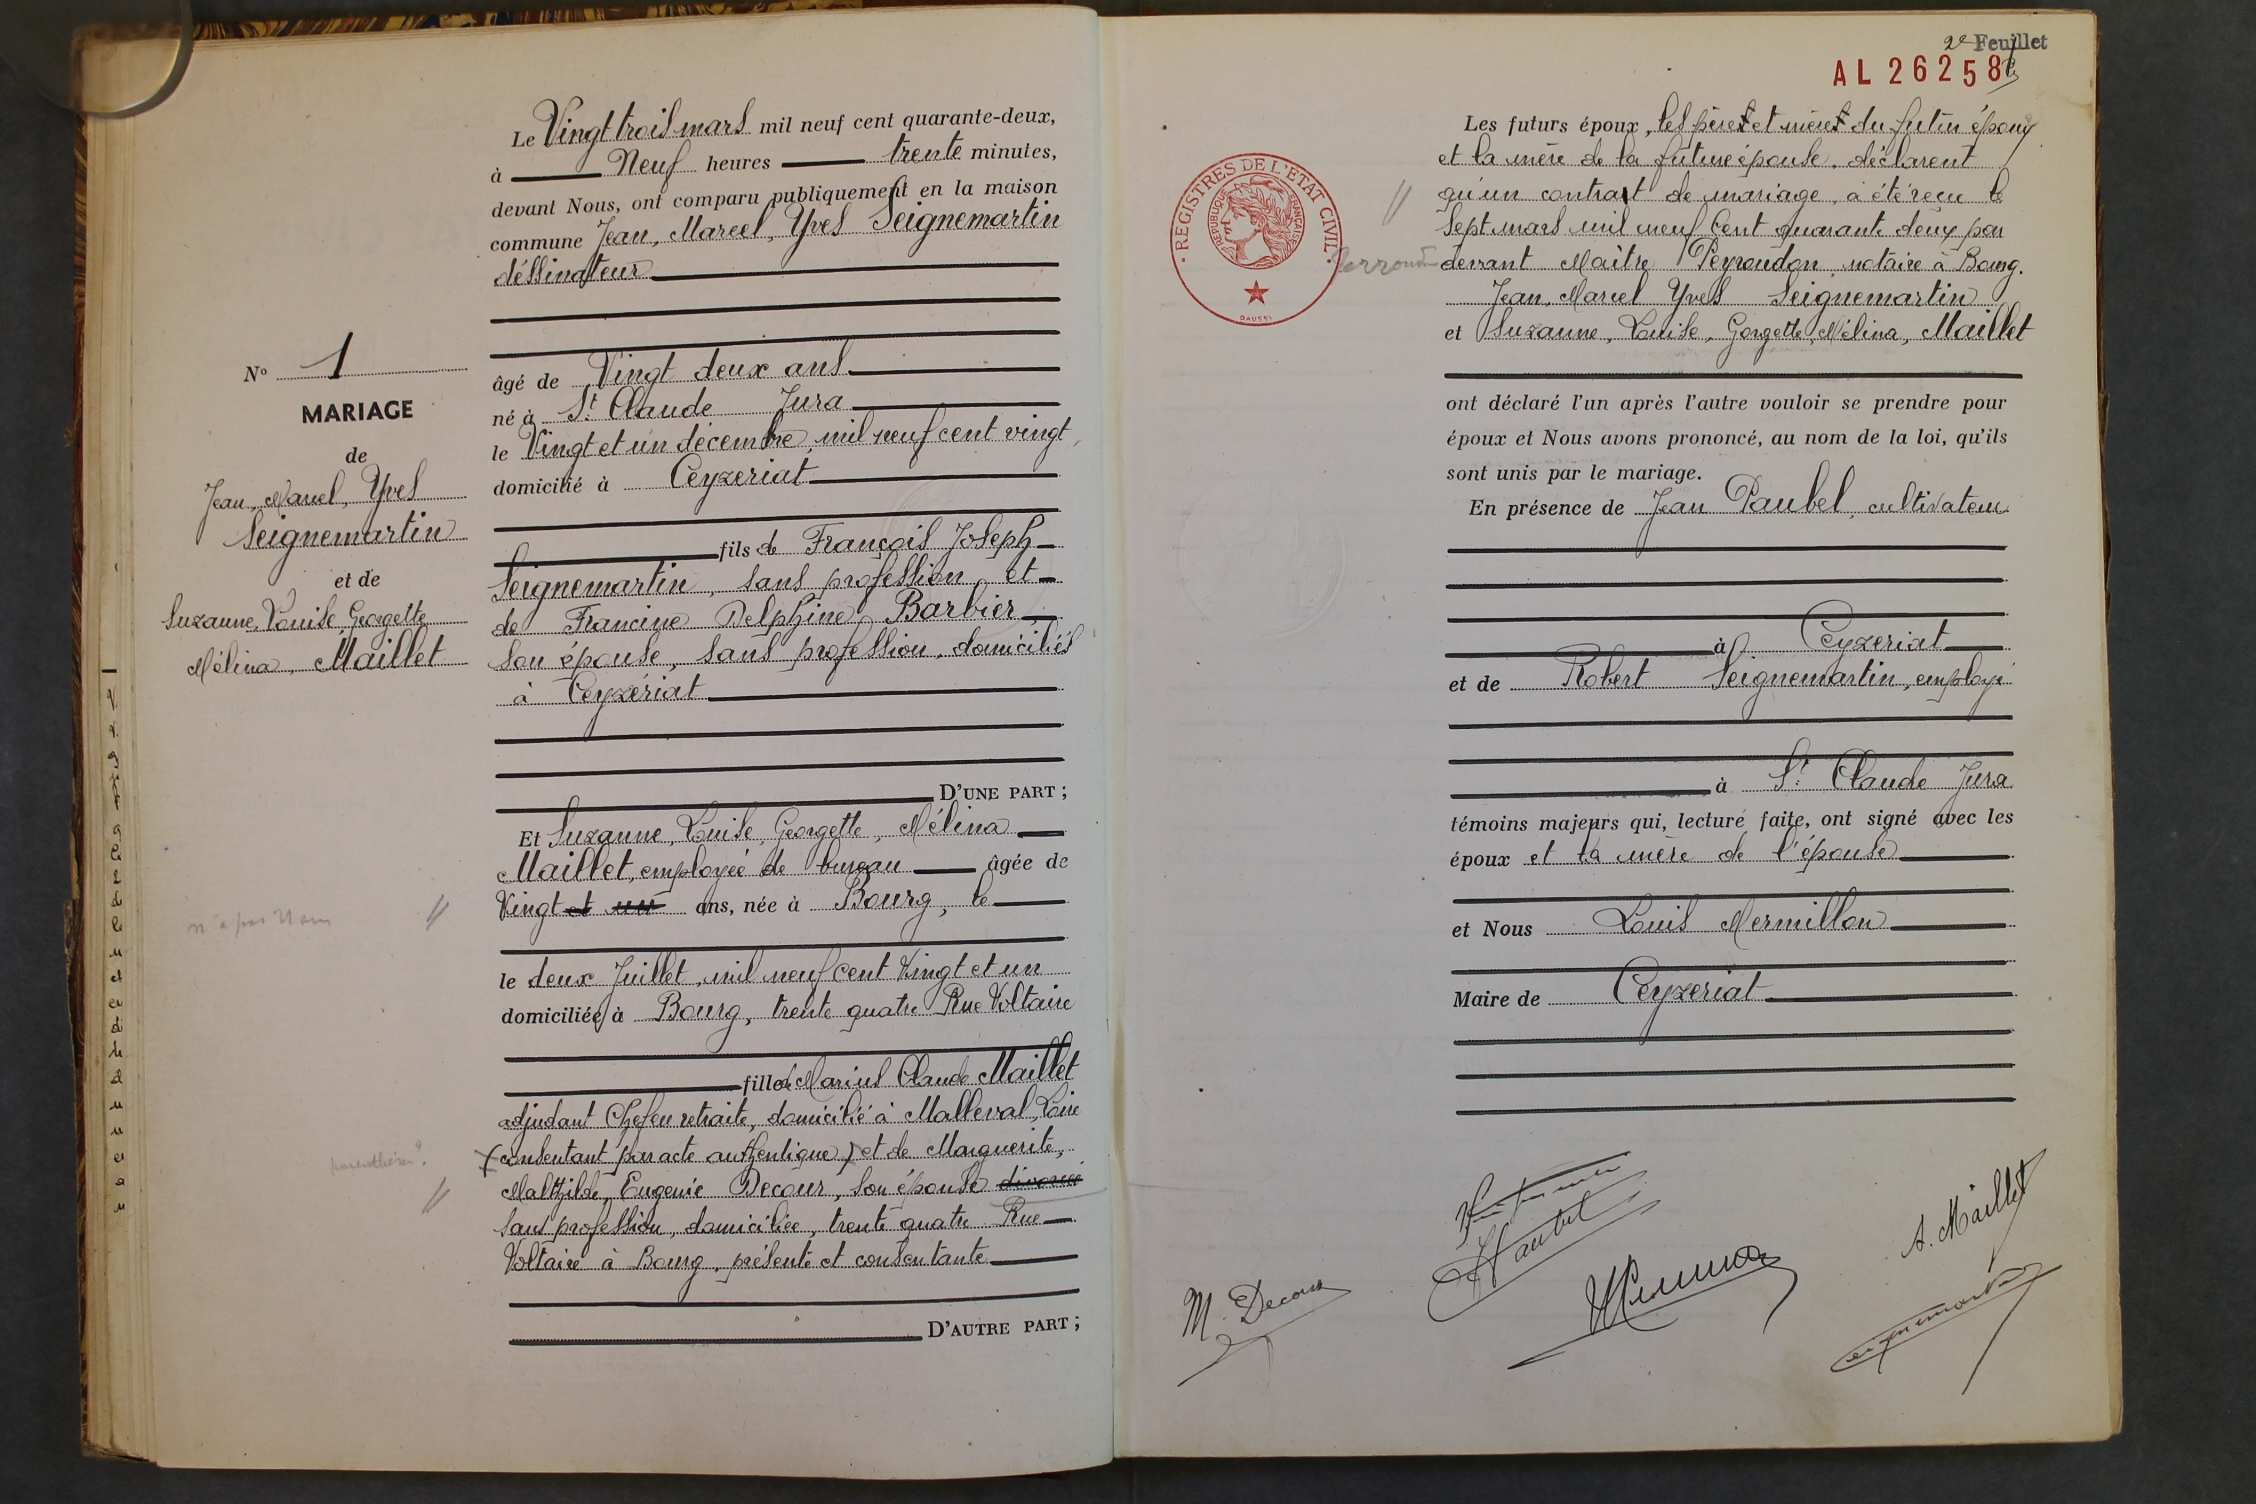 Le Vingt trois mars mil neuf cent quarante-deux,
à Neuf heures trente minutes,
devant Nous, ont comparu publiquement en la maison
commune Jean, Marcel, Yves Seignemartin
déssinateur
âgé de Vingt deux ans
né à St Claude Jura
le Vingt et un décembre, mil neuf cent vingt
domicilié à Ceyzeriat
fils de François Joseph
Seignemartin, sans profession et
de Francine Delphine Barbier,
son épouse, sans profession, domiciliés
à Ceyzériat
D'UNE PART ;
Et Suzanne, Louise, Georgette, Mélina
Maillet, employée de bureau âgée de
Vingt et un ans, née à Bourg, le
le deux Juillet, mil neuf cent Vingt et un
domiciliée à Bourg, trente quatre Rue Voltaire
fille de Marius Claude Maillet
adjudant Chef en retraite, domicilié à Malleval, Loire
(consentant par acte authentique) et de Marguerite,
Malthilde, Eugenie Decour, son épouse divorcé
sans profession, domiciliée, trente quatre Rue
Voltaire à Bourg, présente et consentante
D'AUTRE PART ;
N° 1
MARIAGE
de
Jean, Marcel, Yves
Seignemartin
et de
Suzanne, Louise, Georgette
Mélina, Maillet
n'a pas 21 ans
parenthèses ?
2e Feuillet
AL 26258
REGISTRES DE L'ETAT CIVIL
REPUBLIQUE FRANÇAISE
DAUSSY
Les futurs époux, les pères et mères du futur époux
et la mère de la future épouse, déclarent
qu'un contrat de mariage, a été reçu le
Sept mars mil neuf Cent quarante deux par
devant Maître Peyroudon, notaire à Bourg.
Jean, Marcel Yves Seignemartin
et Suzanne, Louise, Gorgette, Mélina, Maillet
ont déclaré l'un après l'autre vouloir se prendre pour
époux et Nous avons prononcé, au nom de la loi, qu'ils
sont unis par le mariage.
En présence de Jean Paubel, cultivateur
à Ceyzeriat
et de Robert Seignemartin, employé
à St Claude Jura
témoins majeurs qui, lecture faite, ont signé avec les
époux et la mère de l'épouse
et Nous Louis Mermillon
Maire de Ceyzeriat
M. Decour
S. Maillet